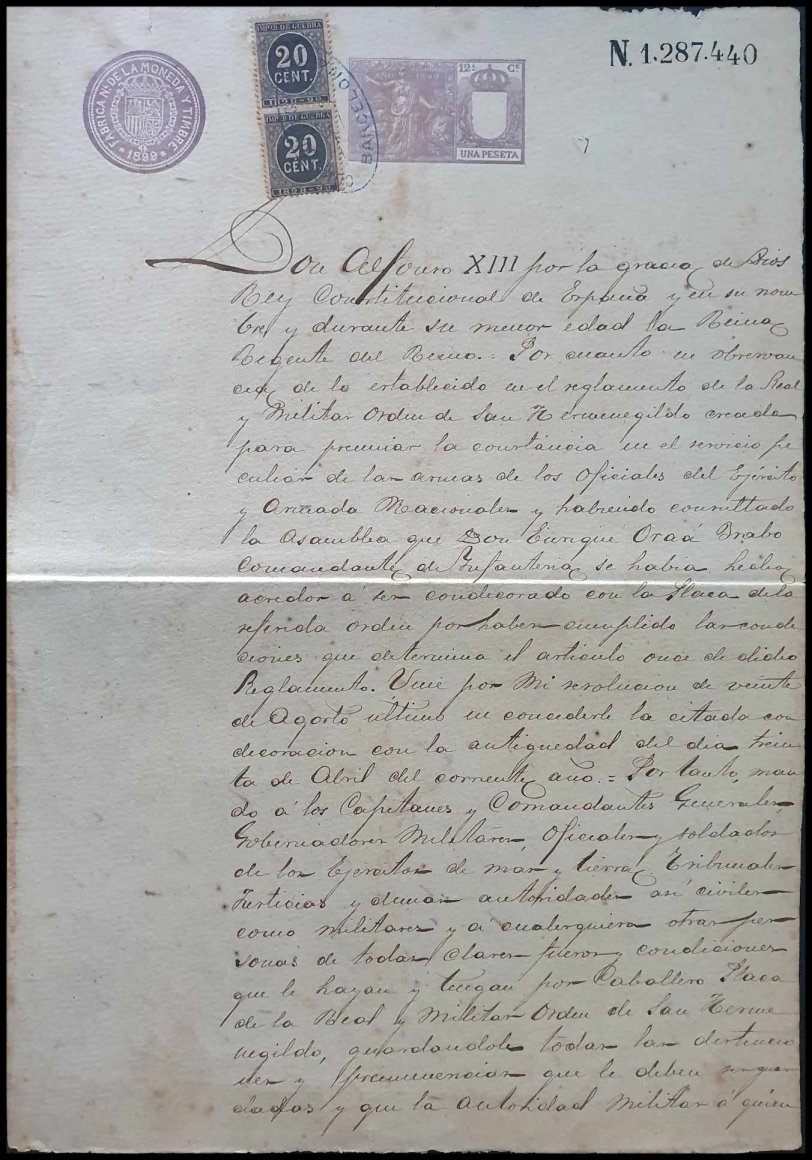 FABRICA Nl. DE LA MONEDA Y TIMBRE
1899
IMPTO DE GUERRA
20
CENT.
1898-99
IMPTO DE GUERRA
20
CENT.
1898-99
BARCELONA
AÑO 1899
12ª Cª
UNA PESETA
N. 1.287.440
Don Alfonso XIII por la gracia de Dios
Rey Constitucional de España y en su nom
bre y durante su menor edad la Reina
Regente del Reino.= Por cuanto en observan
cia de lo establecido en el reglamento de la Real
y Militar Orden de San Hermenegildo creada
para premiar la constancia en el servicio pe
culiar de las armas de los Oficiales del Ejército
y Armada Nacionales y habiendo consultado
la Asamblea que Don Enrique Oraá Brabo
Comandante de Infanteria se habia hecho
acredor á ser condecorado con la Placa de la
referida orden por haber cumplido las condi
ciones que determina el articulo once de dicho
Reglamento. Vine por Mi resolucion de veinte
de Agosto último en concederle la citada con
decoracion con la antiguedad del dia trein
ta de Abril del corriente año.= Por tanto, man
do á los Capitanes y Comandantes Generales,
Gobernadores Militares, Oficiales y soldados
de los Ejercitos de mar y tierra, Tribunales
Justicias y demas autoridades asi civiles
como militares y a cualesquiera otras per
sonas de todas clases fueros y condiciones
que le hayan y tengan por Caballero Placa
de la Real y Militar Orden de San Herme
negildo, guardandole todas las distincio
nes y preeminencias que le deben ser guar
dadas y que la autoridad Militar á quien